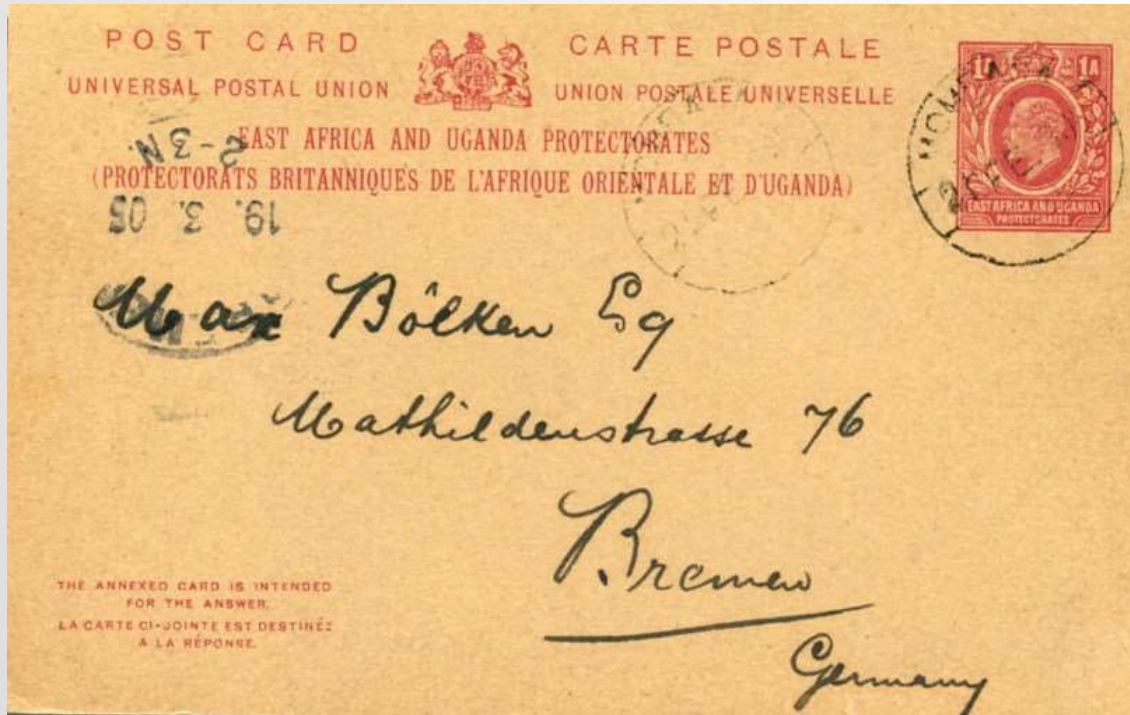 POST CARD
CARTE POSTALE
UNIVERSAL POSTAL UNION
UNION POSTALE UNIVERSELLE
EAST AFRICA AND UGANDA PROTECTORATES
(PROTECTORATS BRITANNIQUES DE L'AFRIQUE ORIENTALE ET D'UGANDA)
1A 1A
EAST AFRICA AND UGANDA
PROTECTORATES
MOMBASA
19. 3. 05
2-3N
Max Bölken Eq
Mathildenstrasse 76
Bremen
Germany
THE ANNEXED CARD IS INTENDED
FOR THE ANSWER.
LA CARTE CI-JOINTE EST DESTINÉE
A LA RÉPONSE.